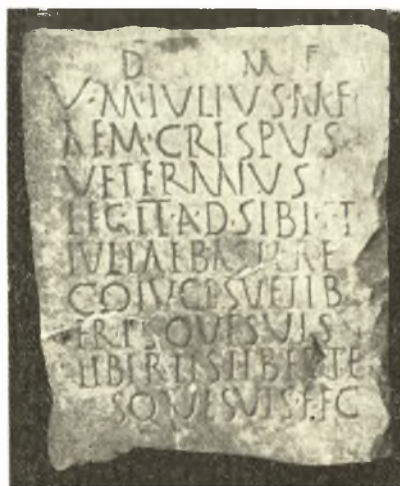 D M F
V·M·IVLIVS·M·F·
AEM·CRISPVS
LEG·II·A·D·SIBI·ET
IVLIAE
COIVGI SVE LIB
ERISQVE SVIS
LIBERTIS LIBERTE
SQVE SVIS·F·FC